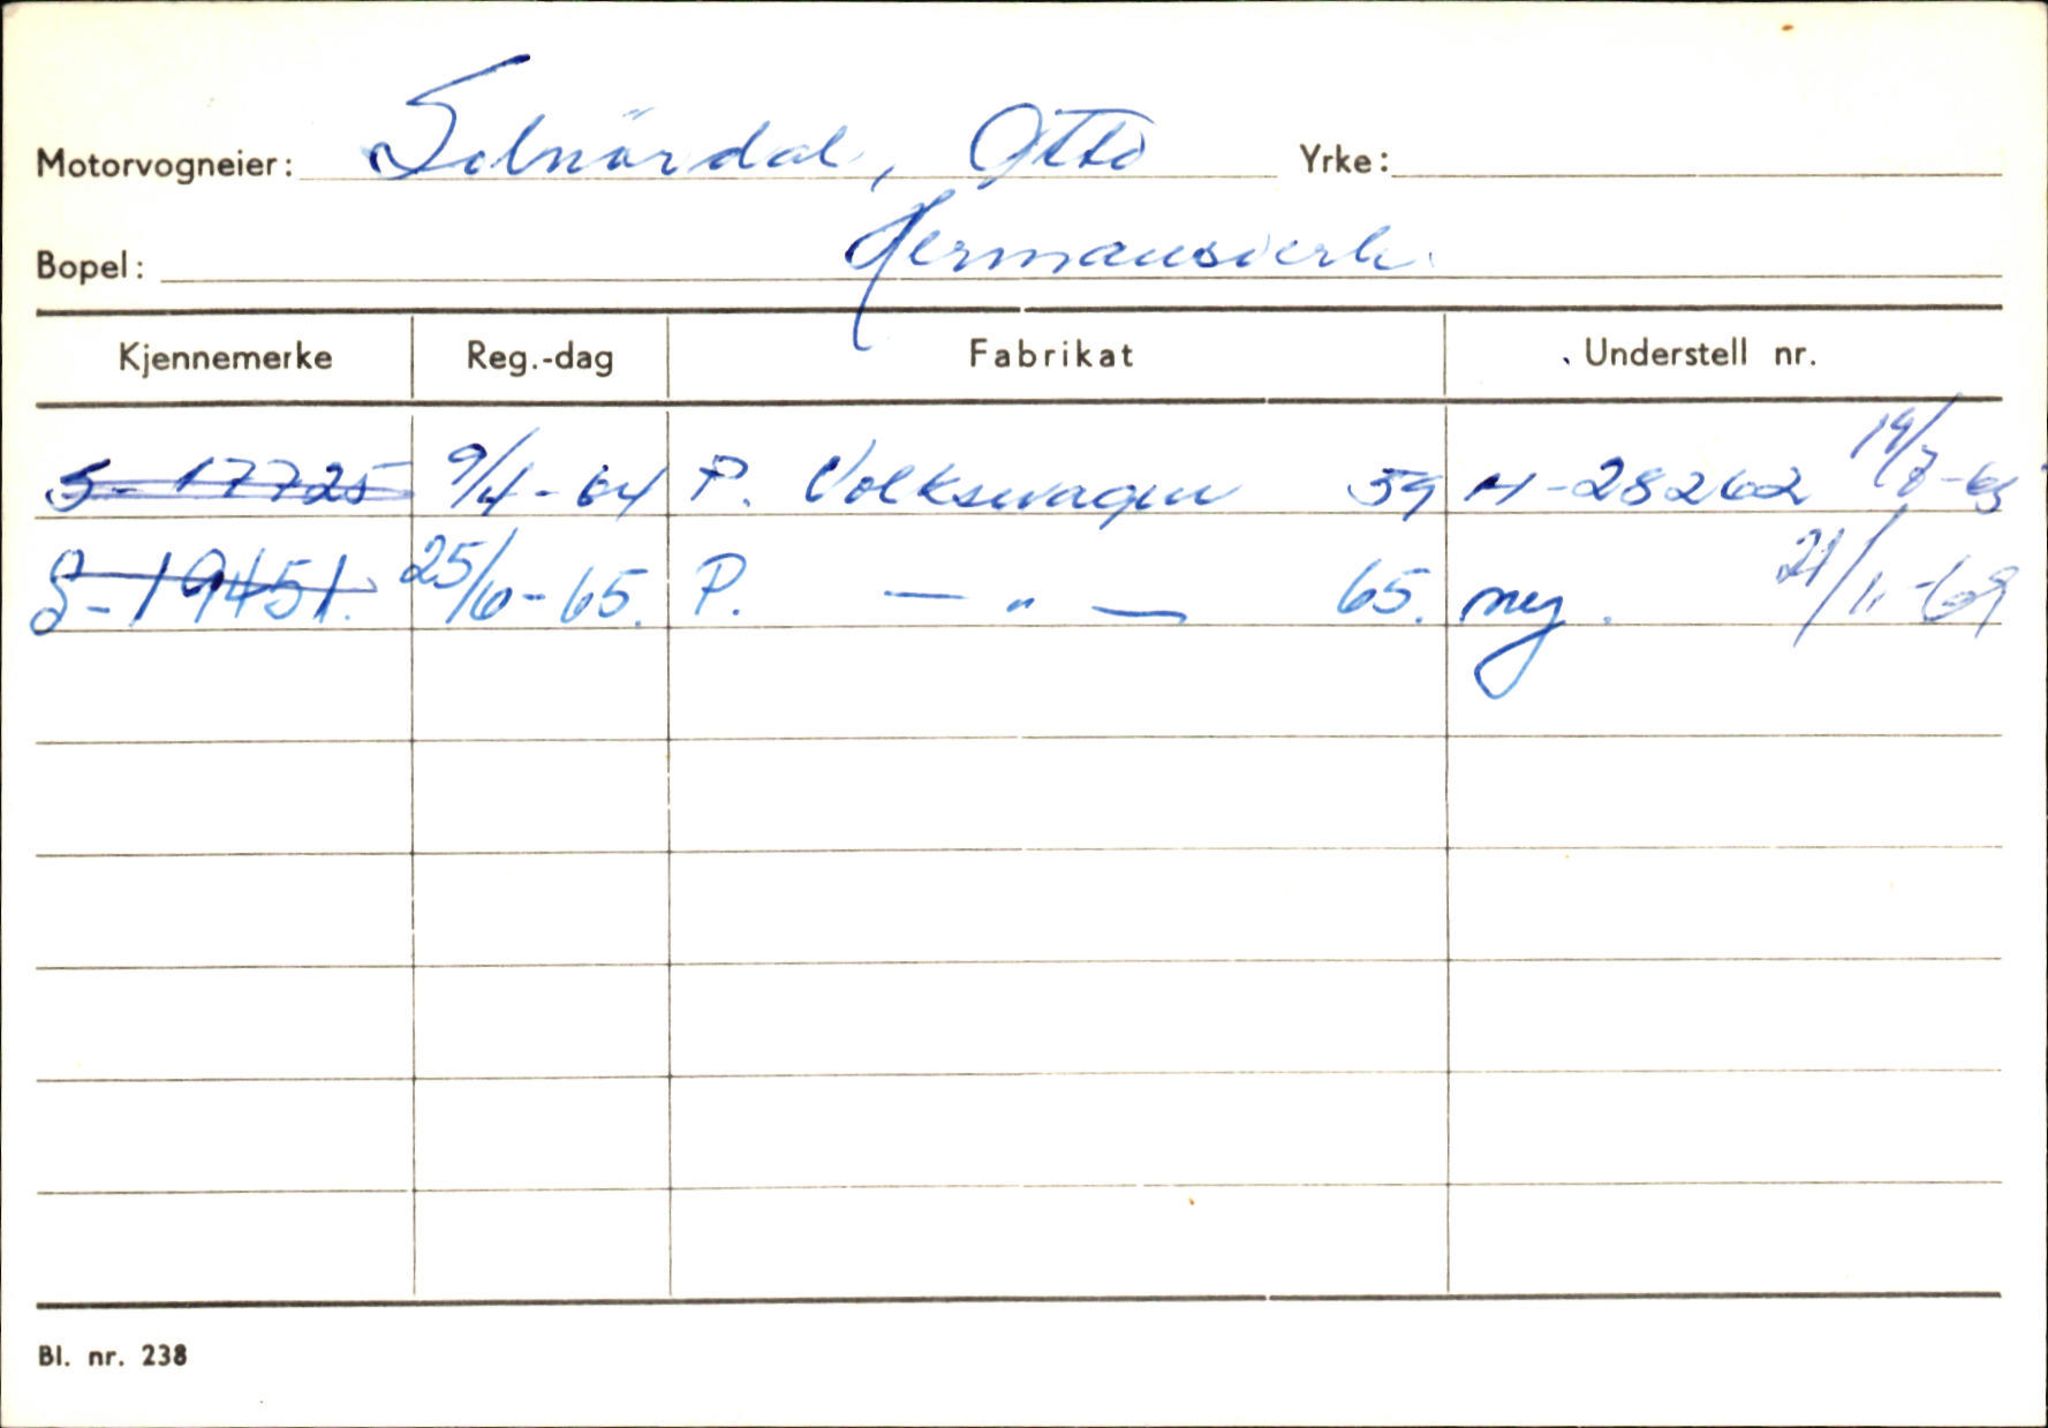 Motorvogneier: Solnördal, Otto Yrke:
Bopel: Hermansverk.
Kjennemerke Reg.-dag Fabrikat Understell nr.
S- 17725 9/4-64 P. Volkswagen 59 H-28262 19/7-65
S-19451. 25/6-65. P. — " — 65. ny. 21/11-69
Bl. nr. 238